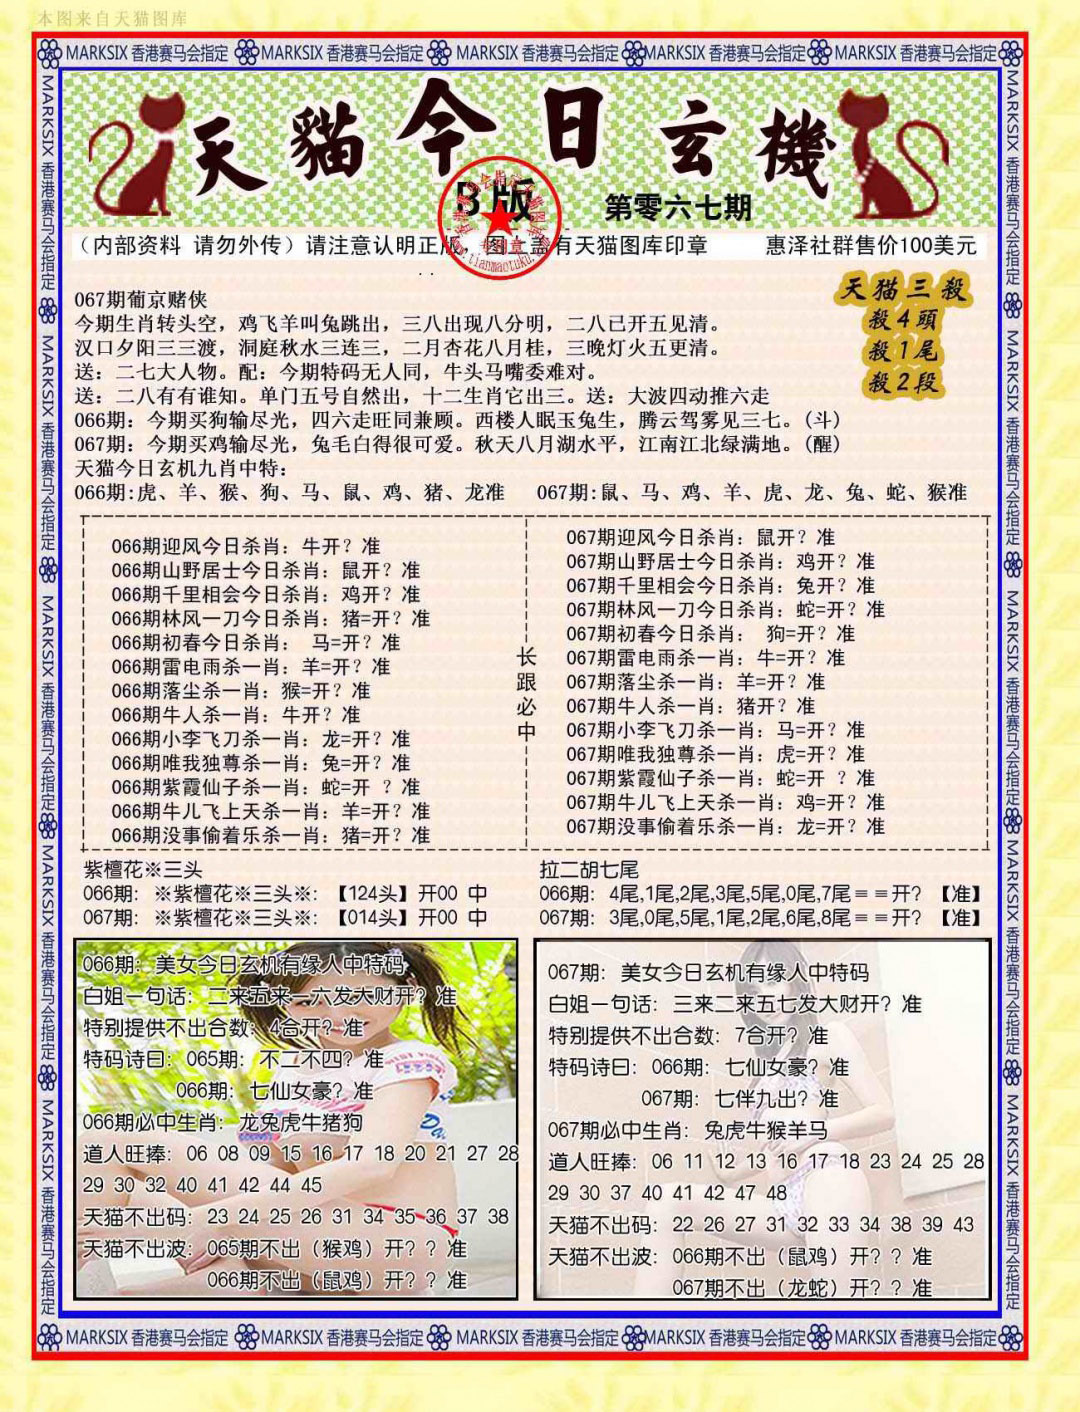 本图来自天猫图库
MARKSIX 香港赛马会指定 MARKSIX 香港赛马会指定 MARKSIX 香港赛马会指定 MARKSIX 香港赛马会指定 MARKSIX 香港赛马会指定
MARKSIX 香港赛马会指定 MARKSIX 香港赛马会指定 MARKSIX 香港赛马会指定 MARKSIX 香港赛马会指定 MARKSIX 香港赛马会指定
MARKSIX 香港赛马会指定 MARKSIX 香港赛马会指定 MARKSIX 香港赛马会指定 MARKSIX 香港赛马会指定 MARKSIX 香港赛马会指定
天貓今日玄機
B版
第零六七期
（内部资料 请勿外传）请注意认明正版，图上盖有天猫图库印章 惠泽社群售价100美元
067期葡京赌侠
今期生肖转头空，鸡飞羊叫兔跳出，三八出现八分明，二八已开五见清。
汉口夕阳三三渡，洞庭秋水三连三，二月杏花八月桂，三晚灯火五更清。
送：二七大人物。配：今期特码无人同，牛头马嘴委难对。
送：二八有有谁知。单门五号自然出，十二生肖它出三。送：大波四动推六走
066期：今期买狗输尽光，四六走旺同兼顾。西楼人眠玉兔生，腾云驾雾见三七。(斗)
067期：今期买鸡输尽光，兔毛白得很可爱。秋天八月湖水平，江南江北绿满地。(醒)
天猫三殺
殺4頭
殺1尾
殺2段
天猫今日玄机九肖中特：
066期:虎、羊、猴、狗、马、鼠、鸡、猪、龙准 067期:鼠、马、鸡、羊、虎、龙、兔、蛇、猴准
066期迎风今日杀肖：牛开？准
066期山野居士今日杀肖：鼠开？准
066期千里相会今日杀肖：鸡开？准
066期林风一刀今日杀肖：猪=开？准
066期初春今日杀肖： 马=开？准
066期雷电雨杀一肖：羊=开？准
066期落尘杀一肖：猴=开？准
066期牛人杀一肖：牛开？准
066期小李飞刀杀一肖：龙=开？准
066期唯我独尊杀一肖：兔=开？准
066期紫霞仙子杀一肖：蛇=开 ？准
066期牛儿飞上天杀一肖：羊=开？准
066期没事偷着乐杀一肖：猪=开？准
长跟必中
067期迎风今日杀肖：鼠开？准
067期山野居士今日杀肖：鸡开？准
067期千里相会今日杀肖：兔开？准
067期林风一刀今日杀肖：蛇=开？准
067期初春今日杀肖： 狗=开？准
067期雷电雨杀一肖：牛=开？准
067期落尘杀一肖：羊=开？准
067期牛人杀一肖：猪开？准
067期小李飞刀杀一肖：马=开？准
067期唯我独尊杀一肖：虎=开？准
067期紫霞仙子杀一肖：蛇=开 ？准
067期牛儿飞上天杀一肖：鸡=开？准
067期没事偷着乐杀一肖：龙=开？准
紫檀花※三头
066期：※紫檀花※三头※：【124头】开00 中
067期：※紫檀花※三头※：【014头】开00 中
拉二胡七尾
066期：4尾,1尾,2尾,3尾,5尾,0尾,7尾＝＝开？【准】
067期：3尾,0尾,5尾,1尾,2尾,6尾,8尾＝＝开？【准】
066期：美女今日玄机有缘人中特码
白姐一句话：二来五来一六发大财开？准
特别提供不出合数：4合开？准
特码诗曰：065期：不二不四？准
066期：七仙女豪？准
066期必中生肖：龙兔虎牛猪狗
道人旺捧：06 08 09 15 16 17 18 20 21 27 28
29 30 32 40 41 42 44 45
天猫不出码：23 24 25 26 31 34 35 36 37 38
天猫不出波：065期不出（猴鸡）开？？准
066期不出（鼠鸡）开？？准
067期：美女今日玄机有缘人中特码
白姐一句话：三来二来五七发大财开？准
特别提供不出合数：7合开？准
特码诗曰：066期：七仙女豪？准
067期：七伴九出？准
067期必中生肖：兔虎牛猴羊马
道人旺捧：06 11 12 13 16 17 18 23 24 25 28
29 30 37 40 41 42 47 48
天猫不出码：22 26 27 31 32 33 34 38 39 43
天猫不出波：066期不出（鼠鸡）开？？准
067期不出（龙蛇）开？？准
MARKSIX 香港赛马会指定 MARKSIX 香港赛马会指定 MARKSIX 香港赛马会指定 MARKSIX 香港赛马会指定 MARKSIX 香港赛马会指定